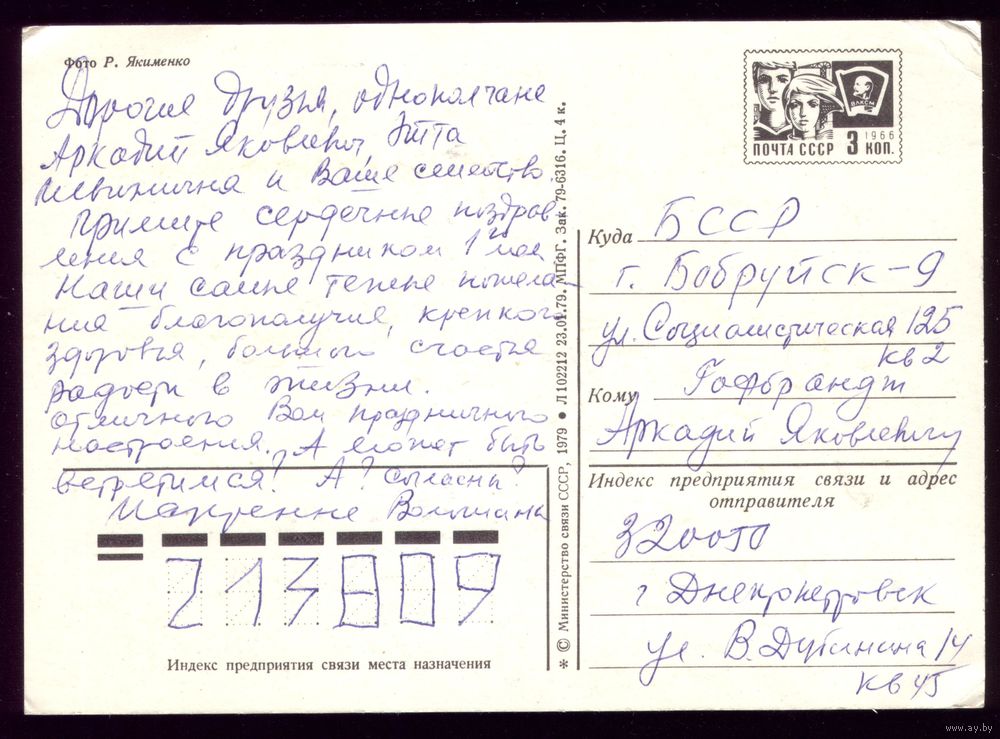 Фото Р. Якименко
Дорогие друзья, однополчане
Аркадий Яковлевич, Этта
и Ваше семейство.
Примите сердечные поздрав
ления с праздником 1 мая
Наши самые теплые пожела
ния благополучия, крепкого
здоровья, большого счастья
радости в жизни.
Отличного Вам праздничного
настроения. А может быть
встретимся? А? Согласны?
Волошина
213809
Индекс предприятия связи места назначения
* © Министерство связи СССР, 1979 ● Л 102212 23.01.79. МПФГ. Зак. 79-6316. Ц. 4 к.
ВЛКСМ
1966
ПОЧТА СССР 3 КОП.
Куда БССР
г. Бобруйск-9
ул. Социалистическая 125
кв 2
Кому Гофбрандт
Аркадий Яковлевичу
Индекс предприятия связи и адрес
отправителя
320050
г Днепропетровск
ул. В. Дубинина 14
кв 45
www.ay.by